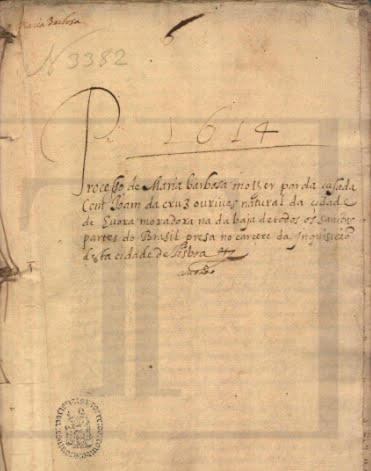 Maria Barbosa
N 3382
1614
Processo de Maria barbosa molher parda casada
Com Joam da cruz ourives natural da cidade
de Evora moradora na da baja de todos os santos
partes do Brasil presa no carcere da Inquisição
desta cidade de Lisboa